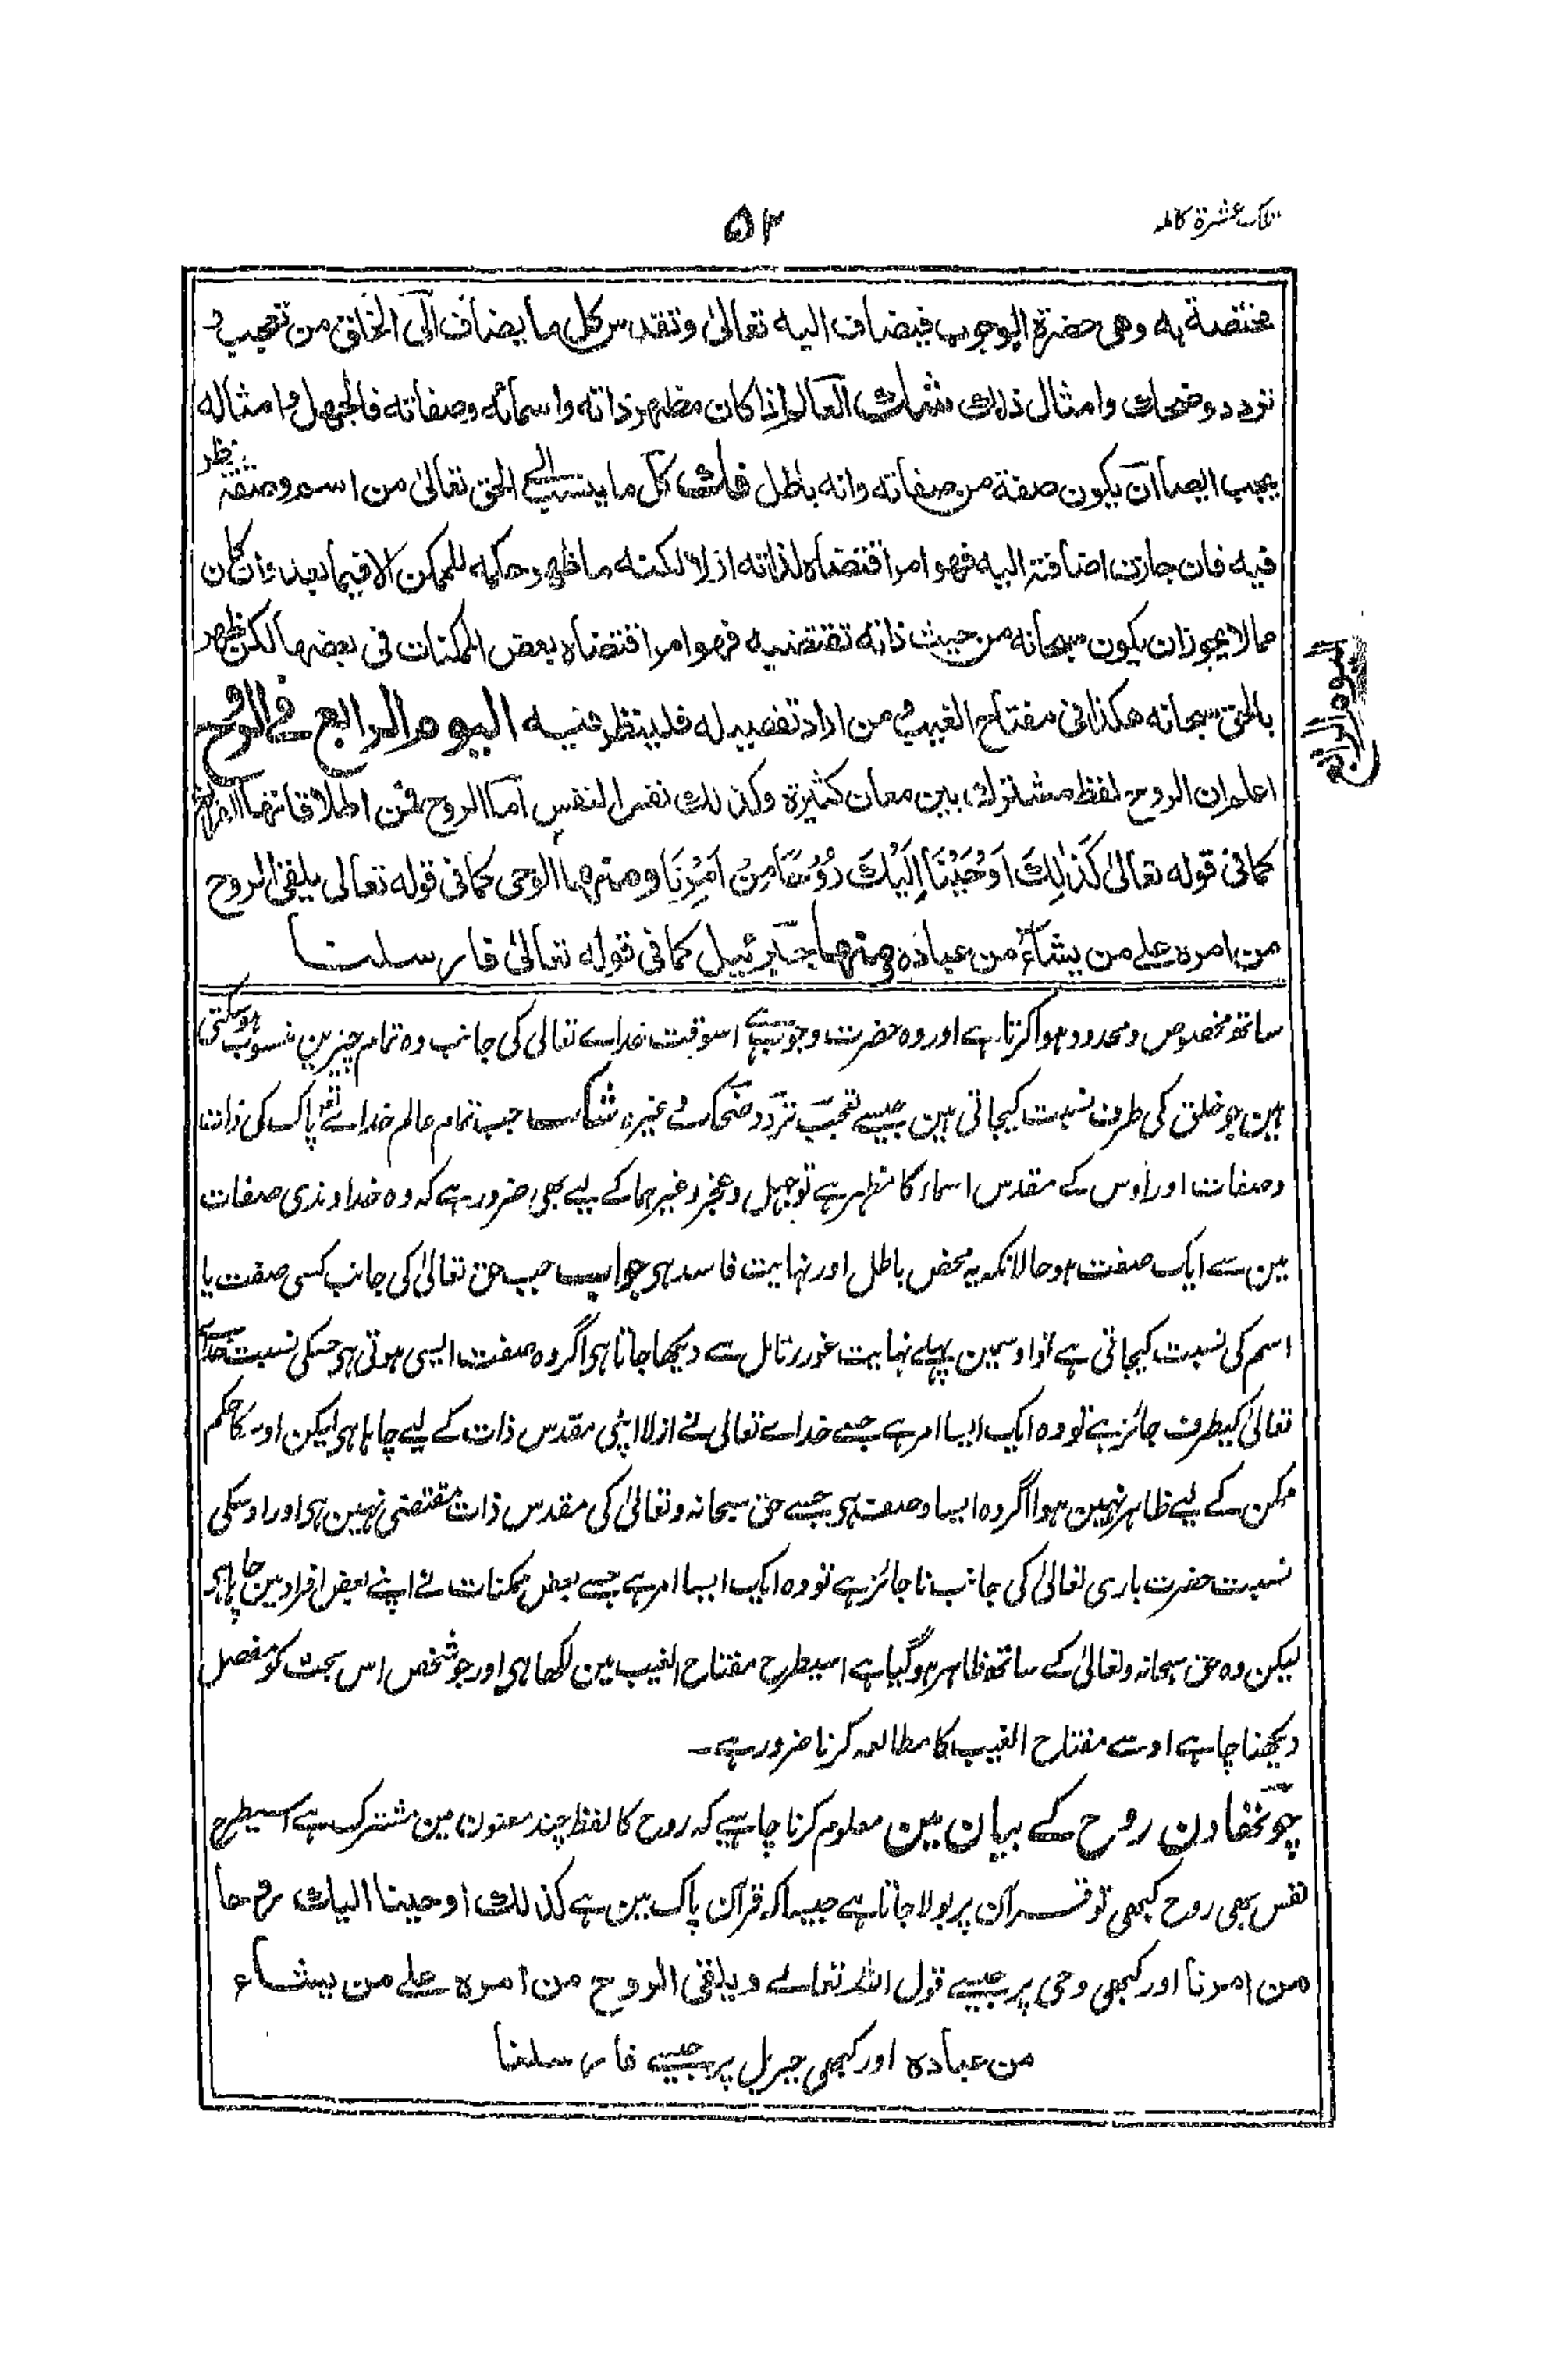 تلک عشرة کاملہ
۵۲
مختصة به وهى حضرة الوجوب فيضاف اليه تعالىٰ وتقدس كل ما يضاف الى الخلق من تعجب و
تردد وضحك وامثال ذلك شك العالم اذا كان مظهر ذاته واسمائه وصفاته فالجهل وامثاله
يجب ايضا ان يكون صفة من صفاته وانه باطل قلت كل ما ينسب الى الحق تعالىٰ من اسم وصفة ينظر
فيه فان جازت اضافته اليه فهو امر اقتضاه لذاته ازلا لكنه ما ظهر حكمه للممكن الا فيما بعد وان كان
مما لا يجوز ان يكون سبحانه من حيث ذاته تقتضيه فهو امر اقتضاه بعض الممكنات فى بعضها لكن ظهر
بالحق سبحانه هكذا فى مفتاح الغيب و من اراد تفصيله فلينظر فيه اليوم الرابع فى الروح
اليوم الرابع
اعلم ان الروح لفظ مشترك بين معان كثيرة وكذلك نفس النفس اما الروح فمن اطلاقاتها القران
كما فى قوله تعالىٰ كَذٰلِكَ اَوْحَيْنَا اِلَيْكَ رُوْحًا مِنْ اَمْرِنَا ومنها الوحى كما فى قوله تعالى يلقى الروح
من امره على من يشاء من عباده ومنها جبرئيل كما فى قوله تعالىٰ فارسلنا
ساتھ مخصوص و محدود ہوا کرتا ہے اور وہ حضرت وجوب ہے اسوقت خداے تعالی کی جانب وہ تمام چیزین منسوب ہوسکتی
ہین جو خلق کی طرف نسبت کیجاتی ہین جیسے تعجب تردد ضحک وغیرہ شک جب تمام عالم خداے تعالی پاک کی ذات
وصفات اور اوس کے مقدس اسماء کا مظہر ہے تو جہل و عجز و غیرہما کے لیے بھی ضرور ہے کہ وہ خداوندی صفات
مین سے ایک صفت ہو حالانکہ یہ محض باطل اور نہایت فاسد ہی جواب جب حق تعالیٰ کی جانب کسی صفت یا
اسم کی نسبت کیجاتی ہے تو اوسمین پہلے نہایت غور و تامل سے دیکھا جاتا ہی اگر وہ صفت ایسی ہوتی ہی جسکی نسبت خداے
تعالیٰ کیطرف جائز ہے تو وہ ایک ایسا امر ہے جسے خداے تعالی نے ازلا اپنی مقدس ذات کے لیے چاہا ہی لیکن اوسکا حکم
ممکن کے لیے ظاہر نہین ہوا اگر وہ ایسا وصف ہی جسے حق سبحانہ وتعالیٰ کی مقدس ذات مقتضی نہین ہی اور اوسکی
نسبت حضرت باری تعالیٰ کی جانب ناجائز ہے تو وہ ایک ایسا امر ہے جسے بعض ممکنات نے اپنے بعض افراد مین چاہا ہی
لیکن وہ حق سبحانہ وتعالیٰ کے ساتھ ظاہر ہو گیا ہے اسیطرح مفتاح الغیب مین لکھا ہی اور جو شخص اس بحث کو مفصل
دیکھنا چاہے اوسے مفتاح الغیب کا مطالعہ کرنا ضرور ہے۔
چوتھا دن روح کے بیان مین معلوم کرنا چاہیے کہ روح کا لفظ چند معنون مین مشترک ہے اسیطرح
نفس بھی روح کبھی تو قرآن پر بولا جاتا ہے جیسا کہ قرآن پاک مین ہے کذلك اوحينا اليك روحا
من امرنا اور کبھی وحی پر جیسے قول اللہ تعالے ويلقى الروح من امره على من يشاء
من عباده اور کبھی جبریل پر جیسے فارسلنا